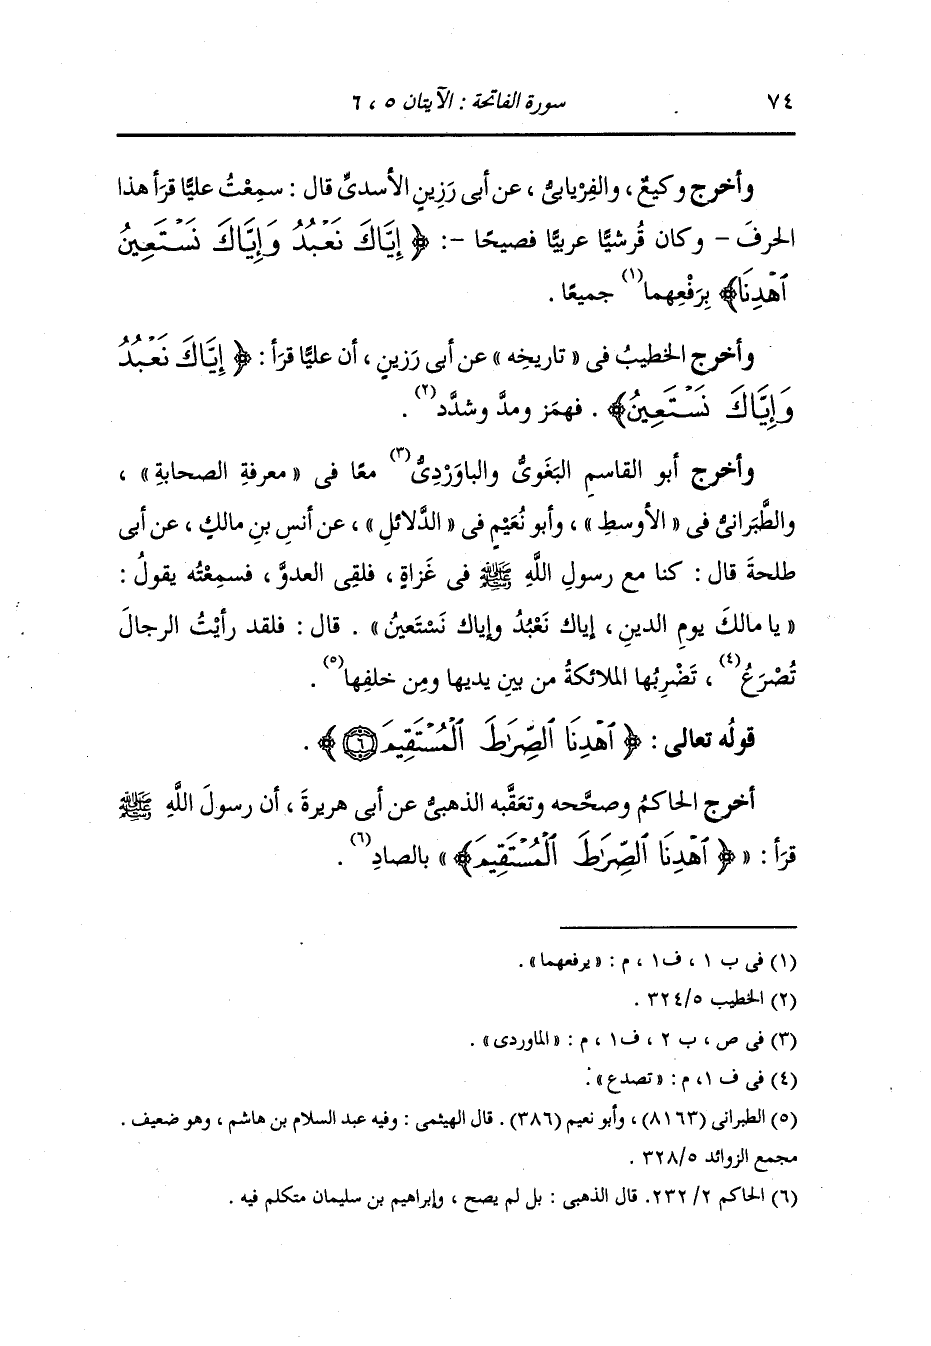 ٧٤ سورة الفاتحة : الآيتان ٥ ، ٦
وأخرج وكيعٌ ، والفِرْيابىُّ ، عن أبى رَزِينٍ الأسدىِّ قال : سمِعْتُ عليًّا قرَأ هذا
الحرفَ – وكان قُرشيًّا عربيًّا فصيحًا –: ﴿ إِيَّاكَ نَعْبُدُ وَإِيَّاكَ نَسْتَعِينُ
ٱهْدِنَا﴾ بِرَفْعِهما(١) جميعًا .
وأخرج الخطيبُ فى « تاريخِه » عن أبى رَزينٍ ، أن عليًّا قرَأ : ﴿ إِيَّاكَ نَعْبُدُ
وَإِيَّاكَ نَسْتَعِينُ﴾ . فهمَز ومدَّ وشدَّد(٢) .
وأخرج أبو القاسمِ البَغَوىُّ والباوَرْدِىُّ(٣) معًا فى « معرفةِ الصحابةِ » ،
والطَّبَرانىُّ فى « الأوسطِ » ، وأبو نُعَيْمٍ فى « الدَّلائلِ » ، عن أنسِ بنِ مالكٍ ، عن أبى
طلحةَ قال : كنا مع رسولِ اللَّهِ ﷺ فى غَزاةٍ ، فلقِى العدوَّ ، فسمِعْتُه يقولُ :
« يا مالكَ يومِ الدينِ ، إياك نَعْبُدُ وإياك نَسْتَعينُ » . قال : فلقد رأيْتُ الرجالَ
تُصْرَعُ(٤) ، تَضْرِبُها الملائكةُ من بينِ يديها ومِن خلفِها(٥) .
قولُه تعالى : ﴿ ٱهْدِنَا ٱلصِّرَٰطَ ٱلْمُسْتَقِيمَ ٦ ﴾ .
أخرج الحاكمُ وصحَّحه وتعَقَّبه الذهبىُّ عن أبى هريرةَ ، أن رسولَ اللَّهِ ﷺ
قرَأ : « ﴿ ٱهْدِنَا ٱلصِّرَٰطَ ٱلْمُسْتَقِيمَ﴾ » بالصادِ(٦) .
(١) فى ب ١ ، ف١ ، م : « يرفعهما » .
(٢) الخطيب ٣٢٤/٥ .
(٣) فى ص ، ب ٢ ، ف١ ، م : « الماوردى » .
(٤) فى ف ١، م : « تصدع » .
(٥) الطبرانى (٨١٦٣) ، وأبو نعيم (٣٨٦) . قال الهيثمى : وفيه عبد السلام بن هاشم ، وهو ضعيف .
مجمع الزوائد ٣٢٨/٥ .
(٦) الحاكم ٢/ ٢٣٢. قال الذهبى : بل لم يصح ، وإبراهيم بن سليمان متكلم فيه .